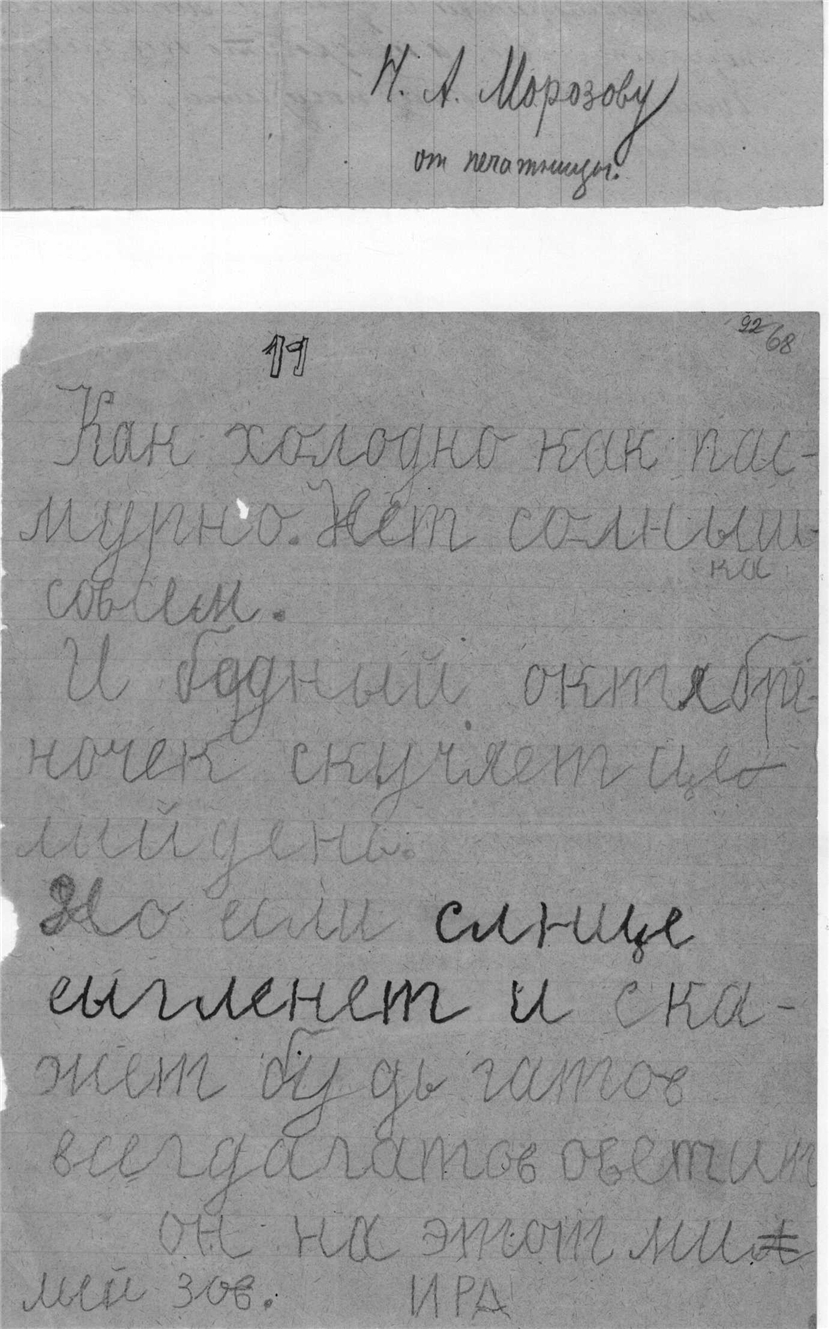 Н. А. Морозову
от печатницы.
11
92
68
Кан холодно как пас-
мурно. Нет солныш-
ка
совсем.
И бедный октябре-
ночек скучяет це-
лий день.
Но если слнце
сыгленет и ска-
жет будь гатов
всегда гатов ответит
он на этот ми
лый зов. ИРА